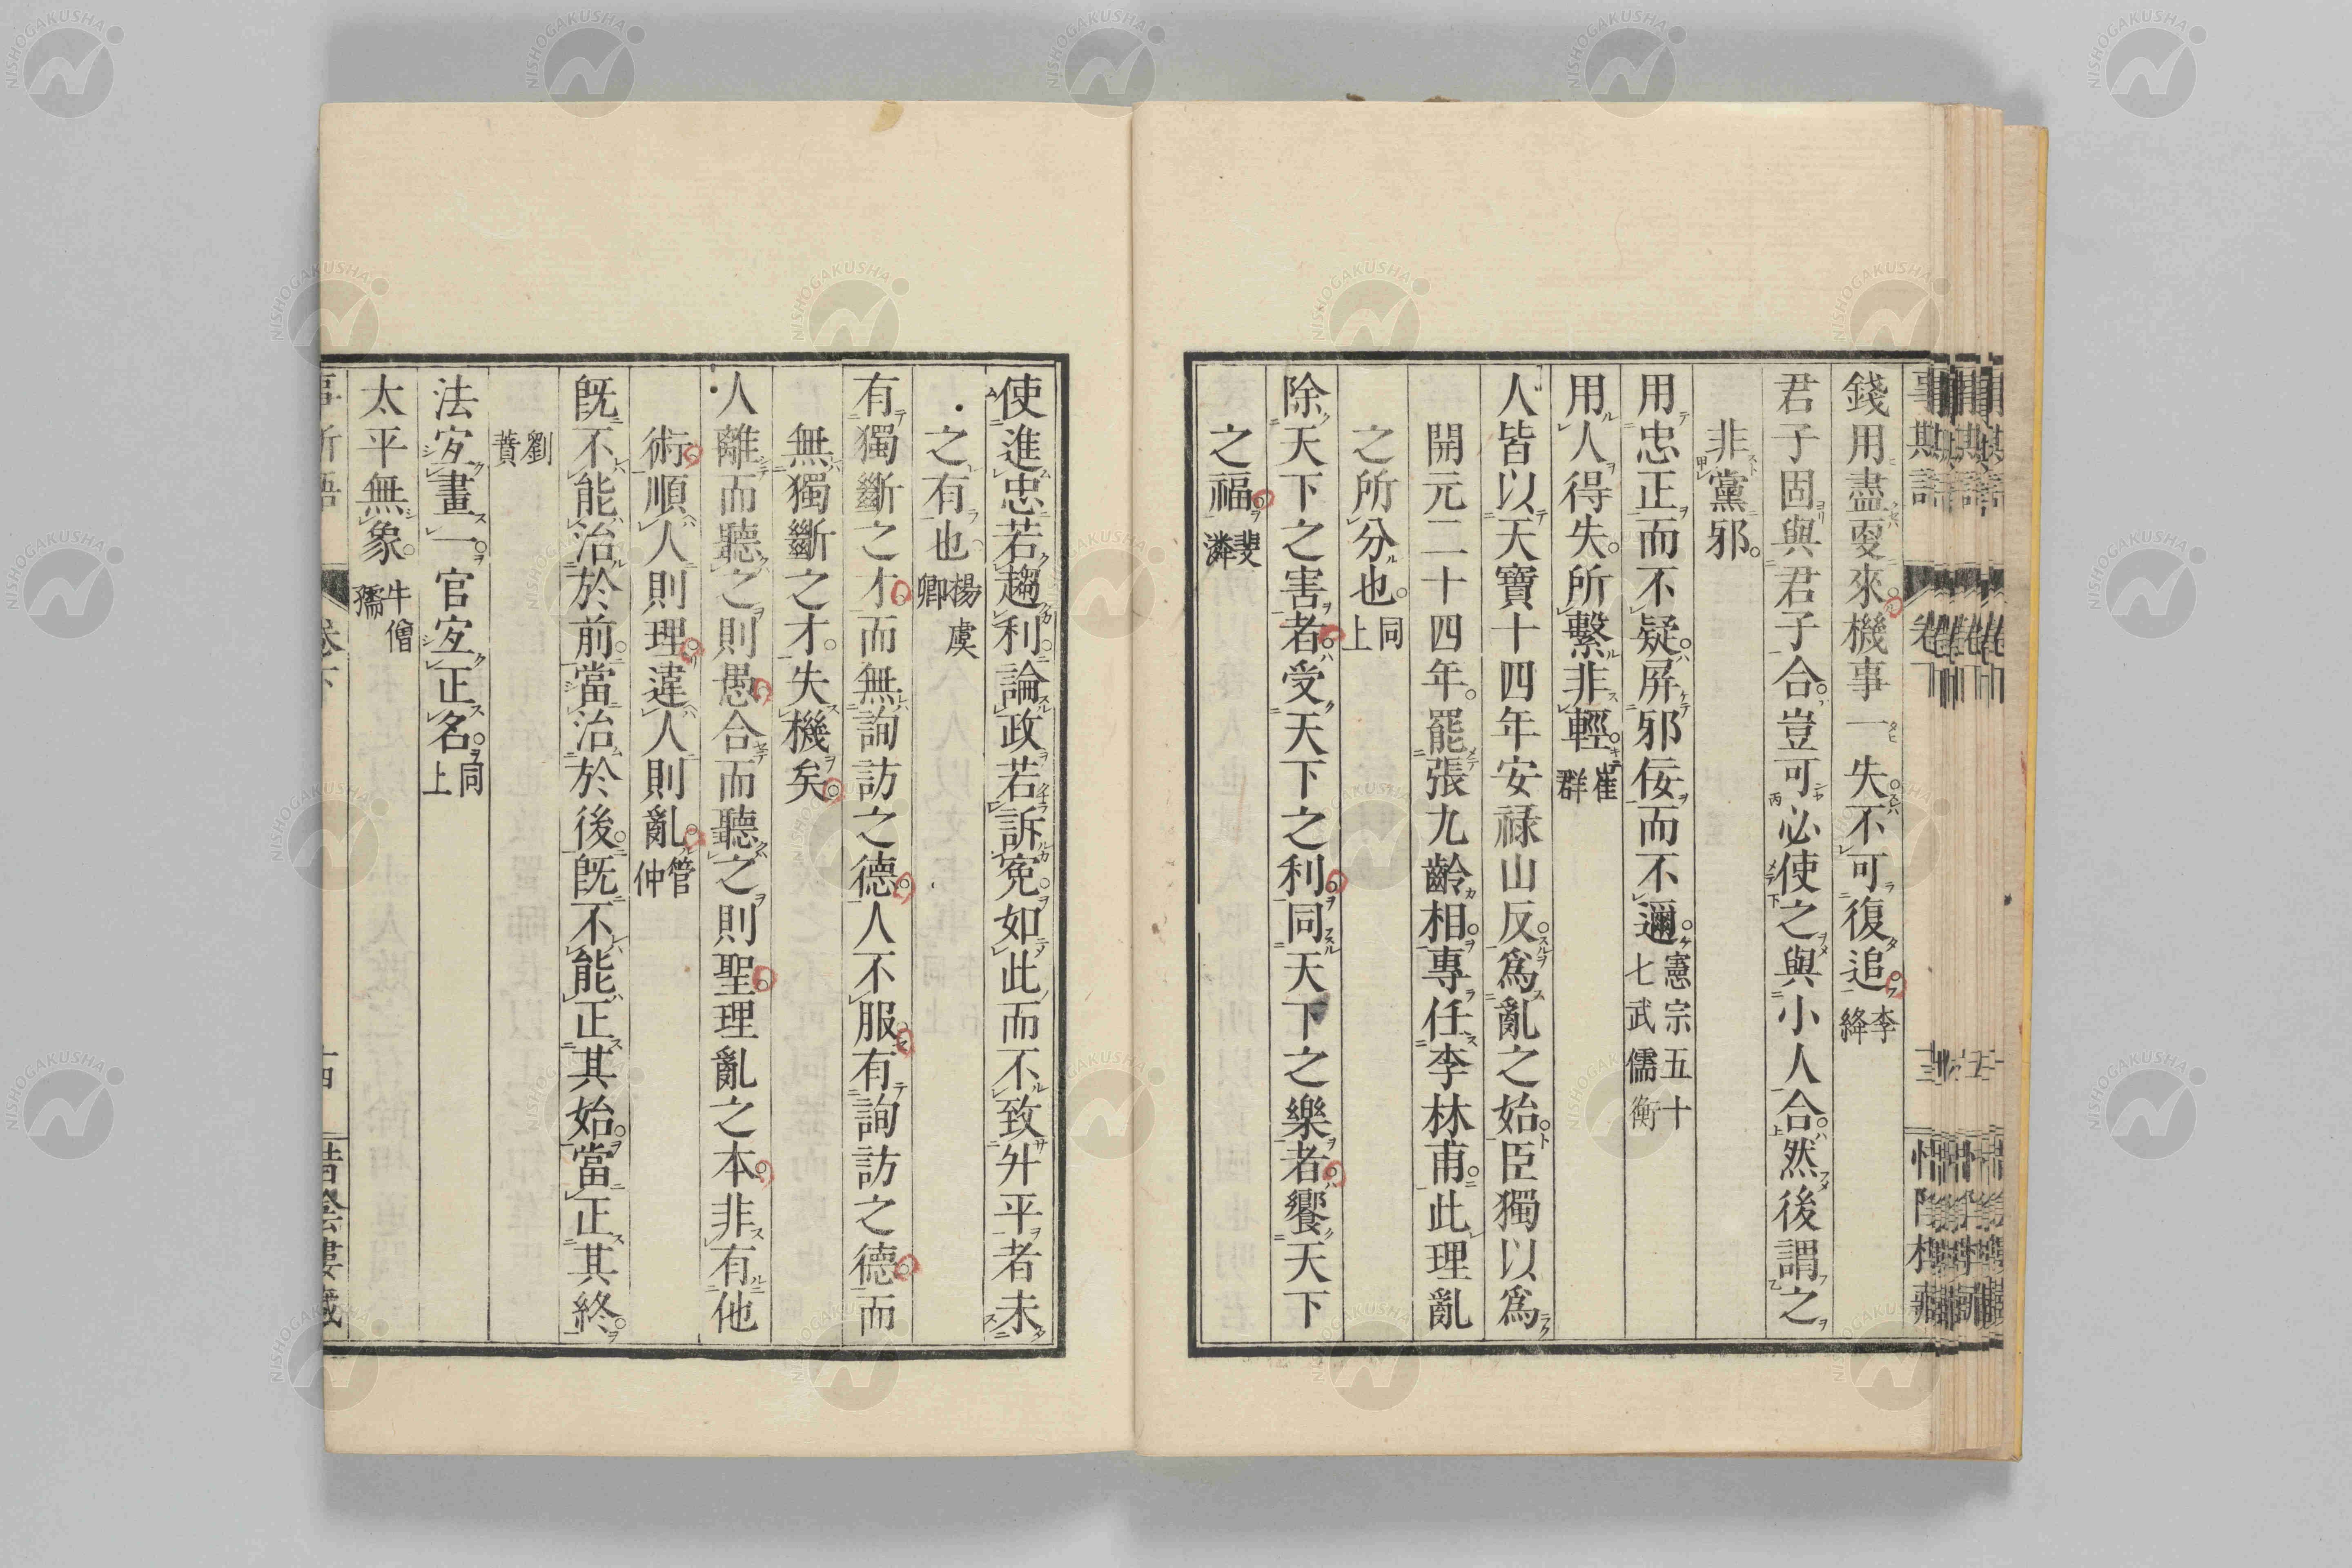 錢用盡更來機事一失不可復追李絳
君子固與君子合豈可必使之與小人合然後謂之
非黨邪
用忠正而不疑屏邪佞而不邇憲宗五十七武儒衡
用人得失所繫非輕崔群
人皆以天寶十四年安祿山反爲亂之始臣獨以爲
開元二十四年罷張九齡相專任李林甫此理亂
之所分也同上
除天下之害者受天下之利同天下之樂者饗天下
之福裴潾
使進忠若趨利論政若訴寃如此而不致升平者未
之有也楊虞卿
有獨斷之才而無詢訪之德人不服有詢訪之德而
無獨斷之才失機矣
人離而聽之則愚合而聽之則聖理亂之本非有他
術順人則理違人則亂管仲
旣不能治於前當治於後旣不能正其始當正其終
劉蕡
法宜畫一官宜正名同上
太平無象牛僧孺
NISHOGAKUSHA